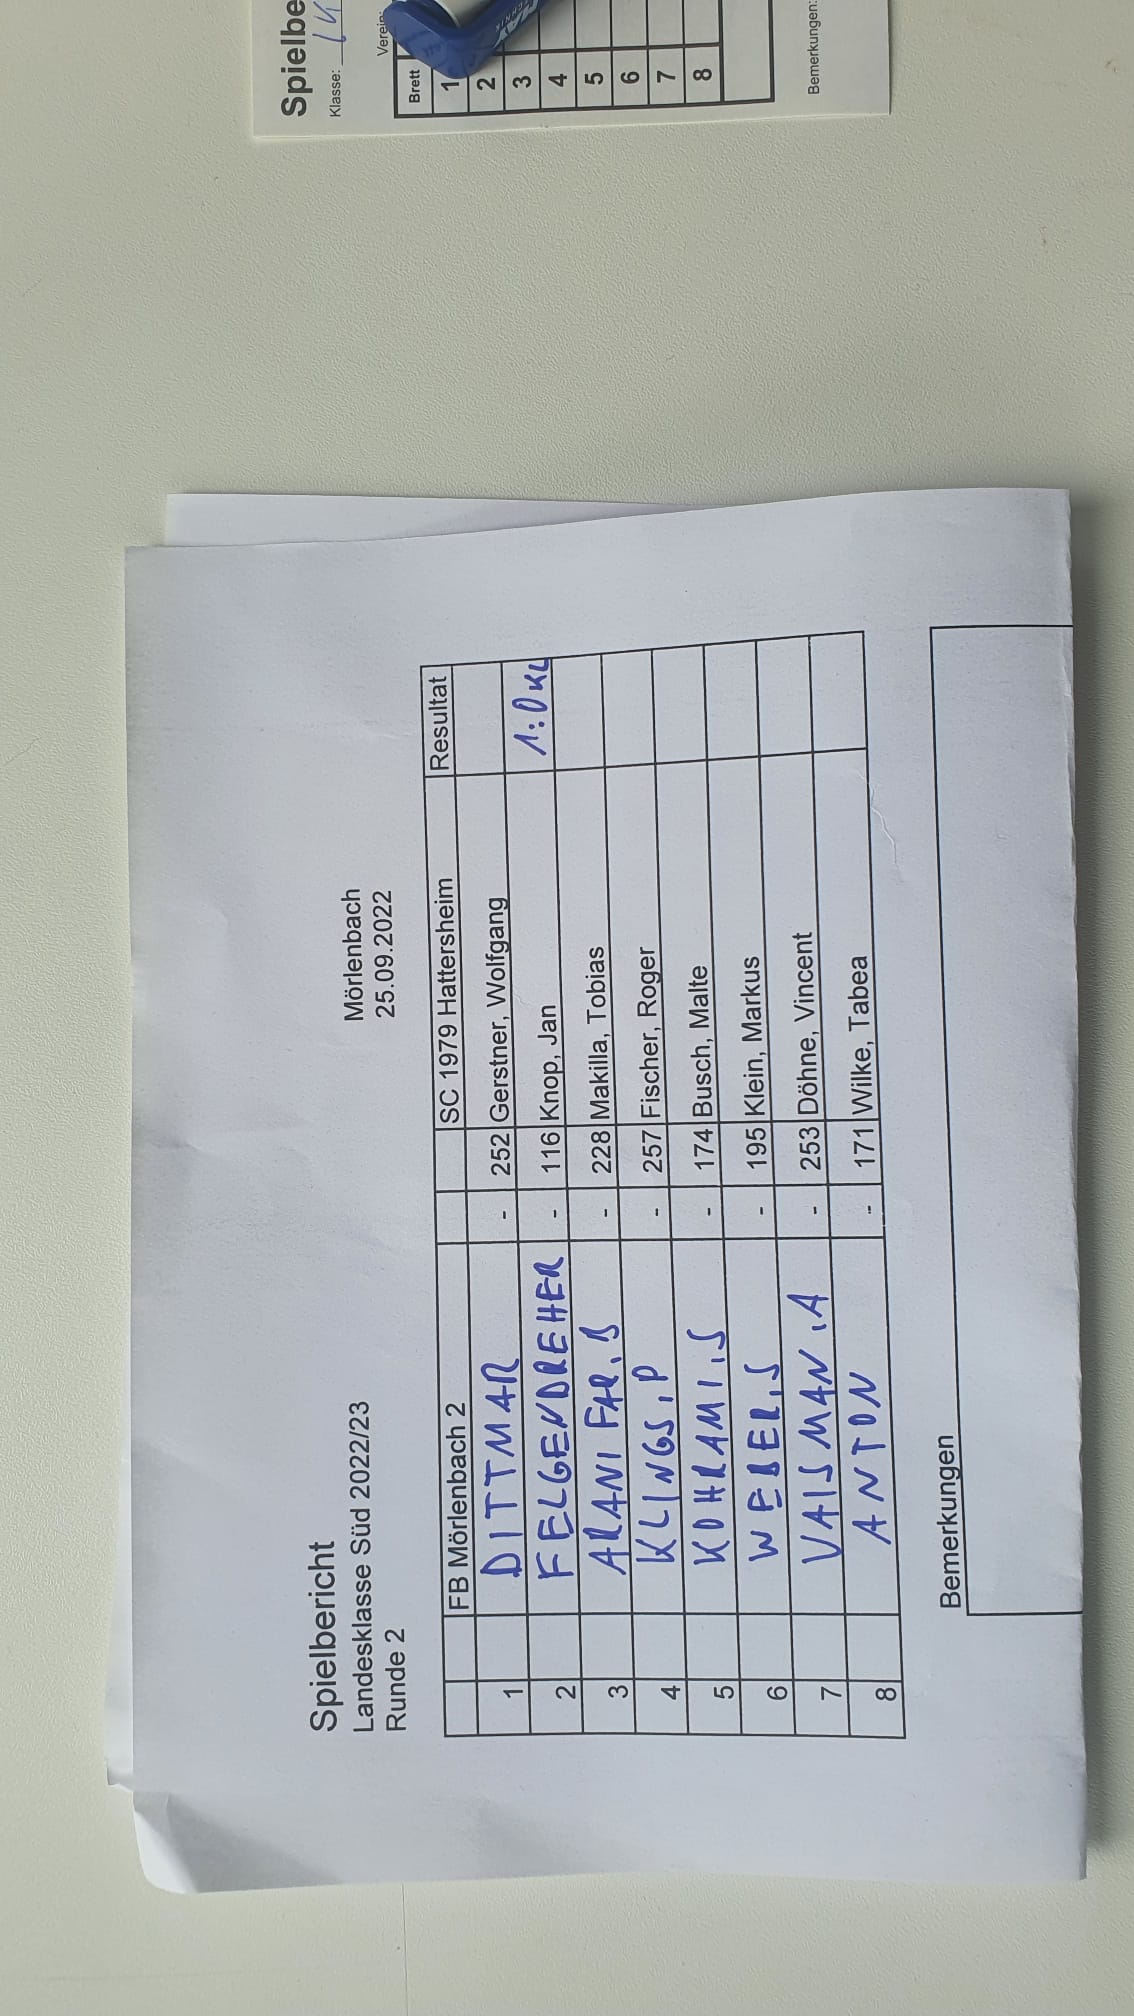 Spielbe
Klasse:
Verein:
Brett
1
2
3
4
5
6
7
8
Bemerkungen:
Spielbericht
Landesklasse Süd 2022/23 Mörlenbach
Runde 2 25.09.2022
FB Mörlenbach 2 SC 1979 Hattersheim Resultat
1 DITTMAR - 252 Gerstner, Wolfgang
2 FELGENDREHER - 116 Knop, Jan 1:0 KL
3 ARANI FAR, B - 228 Makilla, Tobias
4 KLINGS, P - 257 Fischer, Roger
5 KOHRAMI, S - 174 Busch, Malte
6 WEBER, S - 195 Klein, Markus
7 VAISMAN, A - 253 Döhne, Vincent
8 ANTON - 171 Wilke, Tabea
Bemerkungen